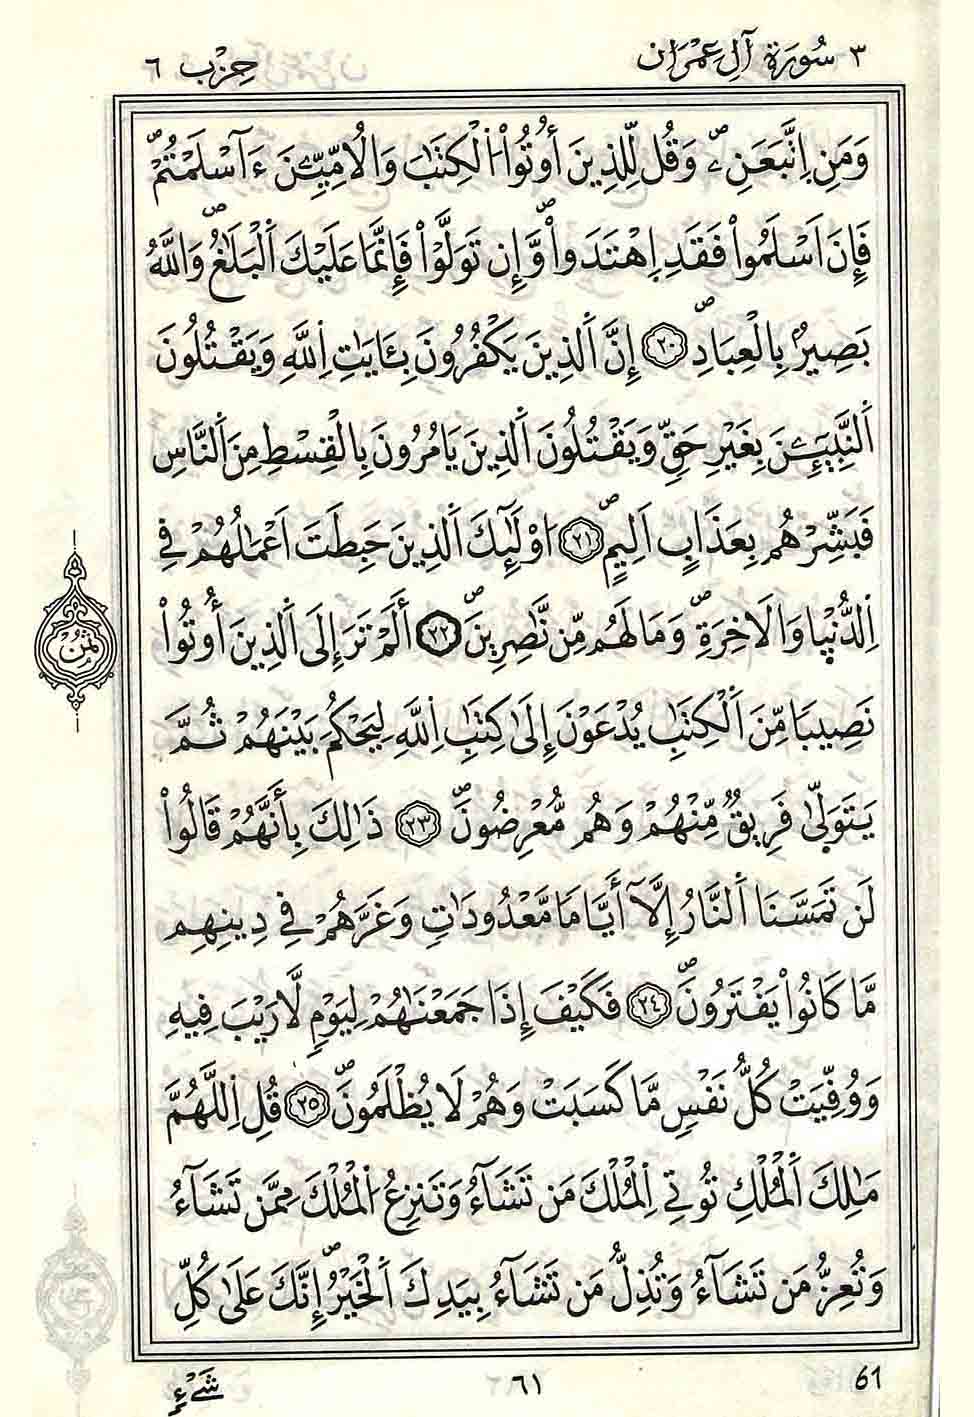 ٣ سُورَةُ آلِ عِمْرَان
حِزْب ٦
وَمَنِ اِتَّبَعَنِۦ وَقُل لِّلذِينَ أُوتُواْ اُلْكِتَٰبَ وَالُامِّيِّۦنَ ءَآسْلَمْتُمْ
فَإِنَ اَسْلَمُواْ فَقَدِ اِهْتَدَواْ وَّإِن تَوَلَّوْاْ فَإِنَّمَا عَلَيْكَ اَلْبَلَٰغُ وَاللَّهُ
بَصِيرٌۢ بِالْعِبَادِ ٢٠ إِنَّ اَلذِينَ يَكْفُرُونَ بِـَٔايَٰتِ اِللَّهِ وَيَقْتُلُونَ
اَلنَّبِيٓـِٕۧنَ بِغَيْرِ حَقٍّ وَيَقْتُلُونَ اَلذِينَ يَامُرُونَ بِالْقِسْطِ مِنَ اَلنَّاسِ
فَبَشِّرْهُم بِعَذَابٍ اَلِيمٍ ٢١ اُوْلَٰٓئِكَ اَلذِينَ حَبِطَتَ اَعْمَٰلُهُمْ فِے
اِلدُّنْي۪ا وَالَاخِرَةِ وَمَا لَهُم مِّن نَّٰصِرِينَ ٢٢ أَلَمْ تَرَ إِلَى اَلذِينَ أُوتُواْ
ثُمُن
نَصِيبًا مِّنَ اَلْكِتَٰبِ يُدْعَوْنَ إِلَىٰ كِتَٰبِ اِللَّهِ لِيَحْكُمَ بَيْنَهُمْ ثُمَّ
يَتَوَلّ۪ىٰ فَرِيقٌ مِّنْهُمْ وَهُم مُّعْرِضُونَ ٢٣ ذَٰلِكَ بِأَنَّهُمْ قَالُواْ
لَن تَمَسَّنَا اَلنَّارُ إِلَّآ أَيَّامًا مَّعْدُودَٰتٍ وَغَرَّهُمْ فِے دِينِهِم
مَّا كَانُواْ يَفْتَرُونَ ٢٤ فَكَيْفَ إِذَا جَمَعْنَٰهُمْ لِيَوْمٍ لَّا رَيْبَ فِيهِ
وَوُفِّيَتْ كُلُّ نَفْسٍ مَّا كَسَبَتْ وَهُمْ لَا يُظْلَمُونَ ٢٥ قُلِ اِللَّهُمَّ
مَٰلِكَ اَلْمُلْكِ تُوتِے اِلْمُلْكَ مَن تَشَآءُ وَتَنزِعُ اُلْمُلْكَ مِمَّن تَشَآءُ
وَتُعِزُّ مَن تَشَآءُ وَتُذِلُّ مَن تَشَآءُ بِيَدِكَ اَلْخَيْرُ إِنَّكَ عَلَىٰ كُلِّ
شَےْءٖ
٦١
61